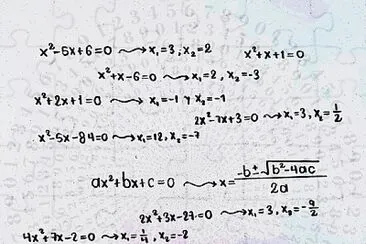 x²-5x+6=0 ⟿ x₁=3, x₂=2
x²+x+1=0
x²+x-6=0 ⟿ x₁=2, x₂=-3
x²+2x+1=0 ⟿ x₁=-1 y x₂=-1
2x²-7x+3=0 ⟿ x₁=3, x₂=1/2
x²-5x-84=0 ⟿ x₁=12, x₂=-7
ax²+bx+c=0 ⟿ x=(-b±√(b²-4ac))/2a
2x²+3x-27=0 ⟿ x₁=3, x₂=-9/2
4x²+7x-2=0 ⟿ x₁=1/4, x₂=-2